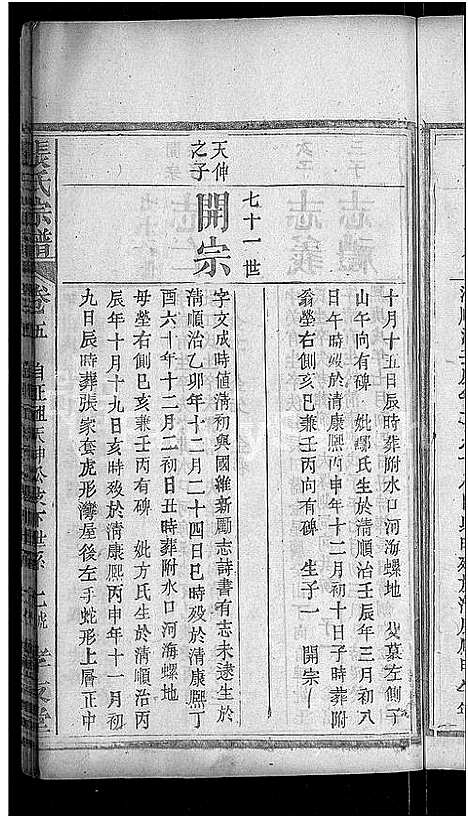 十月十五日辰時葬附水口河海螺地　父墓左側
山午向有碑　妣鄒氏生於清順治壬辰年三月初八
日午時殁於清康熙丙申年十二月初十日子時葬附
翁塋右側亥巳兼壬丙向有碑　生子一　開宗
七十一世
開宗
天仲
之子
字文成時值清初興國維新勵志詩書有志未逮生於
清順治乙卯年十二月二十四日巳時殁於清康熙丁
酉六十年十二月二初日丑時葬附水口河海螺地
母塋右側巳亥兼壬丙有碑　妣方氏生於清順治丙
辰年十月十九日亥時殁於清康熙丙申年十一月初
九日辰時葬張家套虎形灣屋後左手蛇形上層正中
張氏宗譜　卷五